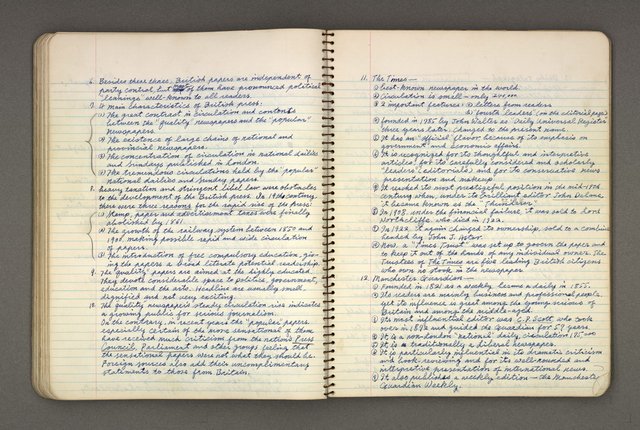 6. Besides these three, British papers are independent of
party control, but most of them have pronounced political
leanings well-known to all readers.
7. 4 Main characteristics of British press:
(1) The great contrast in circulation and contents
between the "quality" newspapers and the "popular"
newspapers.
(2) The existence of large chains of national and
provincial newspapers.
(3) The concentration of circulation in national dailies
and Sundays published in London.
(4) The tremendous circulations held by the "popular"
national dailies and Sunday papers.
8. Heavy taxation and stringent libel law were obstacles
to the development of the British press. In 19th century,
there were three reasons for the rapid rise of the press:
(1) Stamp, paper and advertisement taxes were finally
abolished by 1861.
(2) The growth of the railway system between 1850 and
1900, making possible rapid and wide circulation
of papers.
(3) The introduction of free compulsory education, giv-
ing the papers a broad literate potential readership.
9. The "quality" papers are aimed at the highly educated.
They devote considerable space to politics, government,
education and the arts. Headlines are usually small,
dignified and not very exciting.
10. The quality newspaper's steady circulation rise indicates
a growing public for serious journalism.
On the contrary, in recent years the "popular" papers,
especially certain of the more sensational of them
have received much criticism from the nation's Press
Council, Parliament and other groups feeling that
the sensational papers were not what they should be.
Foreign sources also add their uncomplimentary
statements to those from Britain.
11. The Times—
① best-known newspaper in the world.
② Circulation is small—only
③ 2 important features: a) letters from readers
b) fourth leaders (on the editorial page)
④ founded in 1785 by John Walter as "Daily Universal Register"
three years later, changed to the present name.
⑤ It has an "official" flavor because of its emphasis on
government and economic affairs.
⑥ It is recognized for its thoughtful and interpretive
articles, for its carefully considered and scholarly
"leaders" (editorials) and for its conservative news
presentation and makeup.
⑦ It reached its most prestigeful position in the mid-19th
century when, under its brilliant editor John Delane,
it became known as the "Thunderer".
⑧ In 1908, under the financial failure, it was sold to Lord
Northcliffe, who died in 1922.
⑨ In 1922, it again changed its ownership, sold to a combine
headed by John J. Astor.
⑩ Now, a "Times Trust" was set up to govern the paper and
to keep it out of the hands of any individual owner. The
trustees of The Times are five leading British citizens
who own no stock in the newspaper.
12. Manchester Guardian—
① Founded in 1821 as a weekly, became a daily in 1855.
② Its readers are mainly business and professional people,
yet its influence is great among the young seniors of
Britain and among the middle-aged.
③ Its most influential editor was C. P. Scott, who took
over in 1872 and guided the Guardian for 57 years.
④ It is a non-London "national" daily, circulation
⑤ It is a traditionally a liberal newspaper.
⑥ It is particularly influential in its dramatic criticism
and book-reviewing and for its well-rounded and
interpretive presentation of international news.
⑦ It also publishes a weekly edition—the Manchester
Guardian Weekly.